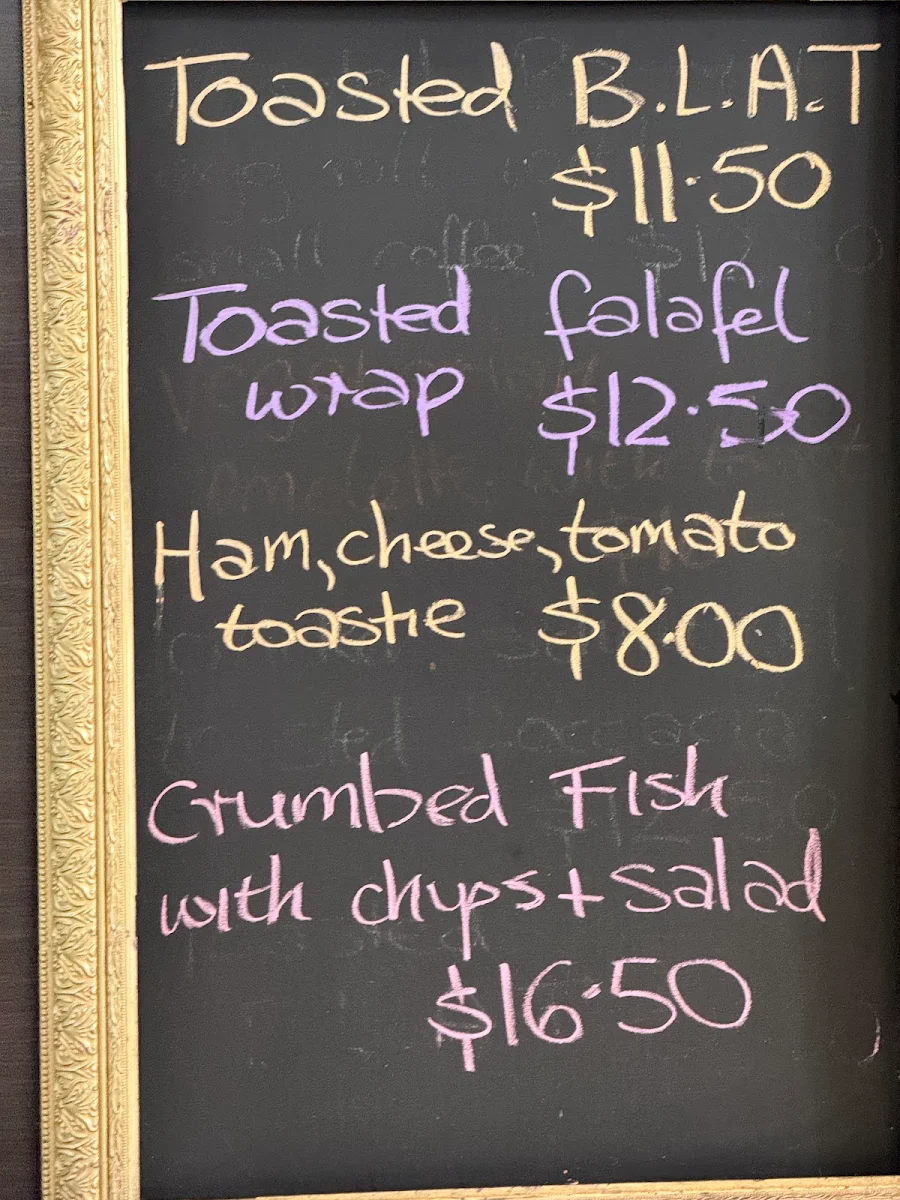 Toasted B.L.A.T
$11.50
small coffee
Toasted falafel
wrap $12.50
Ham, cheese, tomato
toastie $8.00
Crumbed Fish
with chips + salad
$16.50